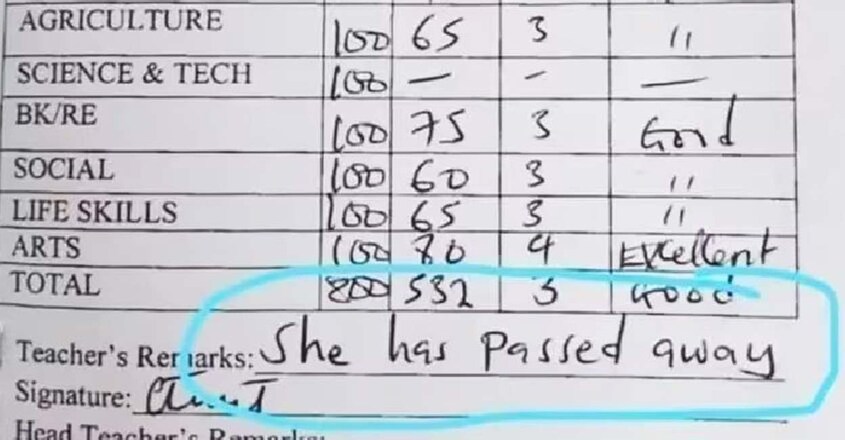 AGRICULTURE 100 65 3 "
SCIENCE & TECH 100 — - —
BK/RE 100 75 3 Good
SOCIAL 100 60 3 "
LIFE SKILLS 100 65 3 "
ARTS 100 80 4 Excellent
TOTAL 800 532 3 Good
Teacher's Remarks: She has passed away
Signature:
Head Teacher's Remarks: